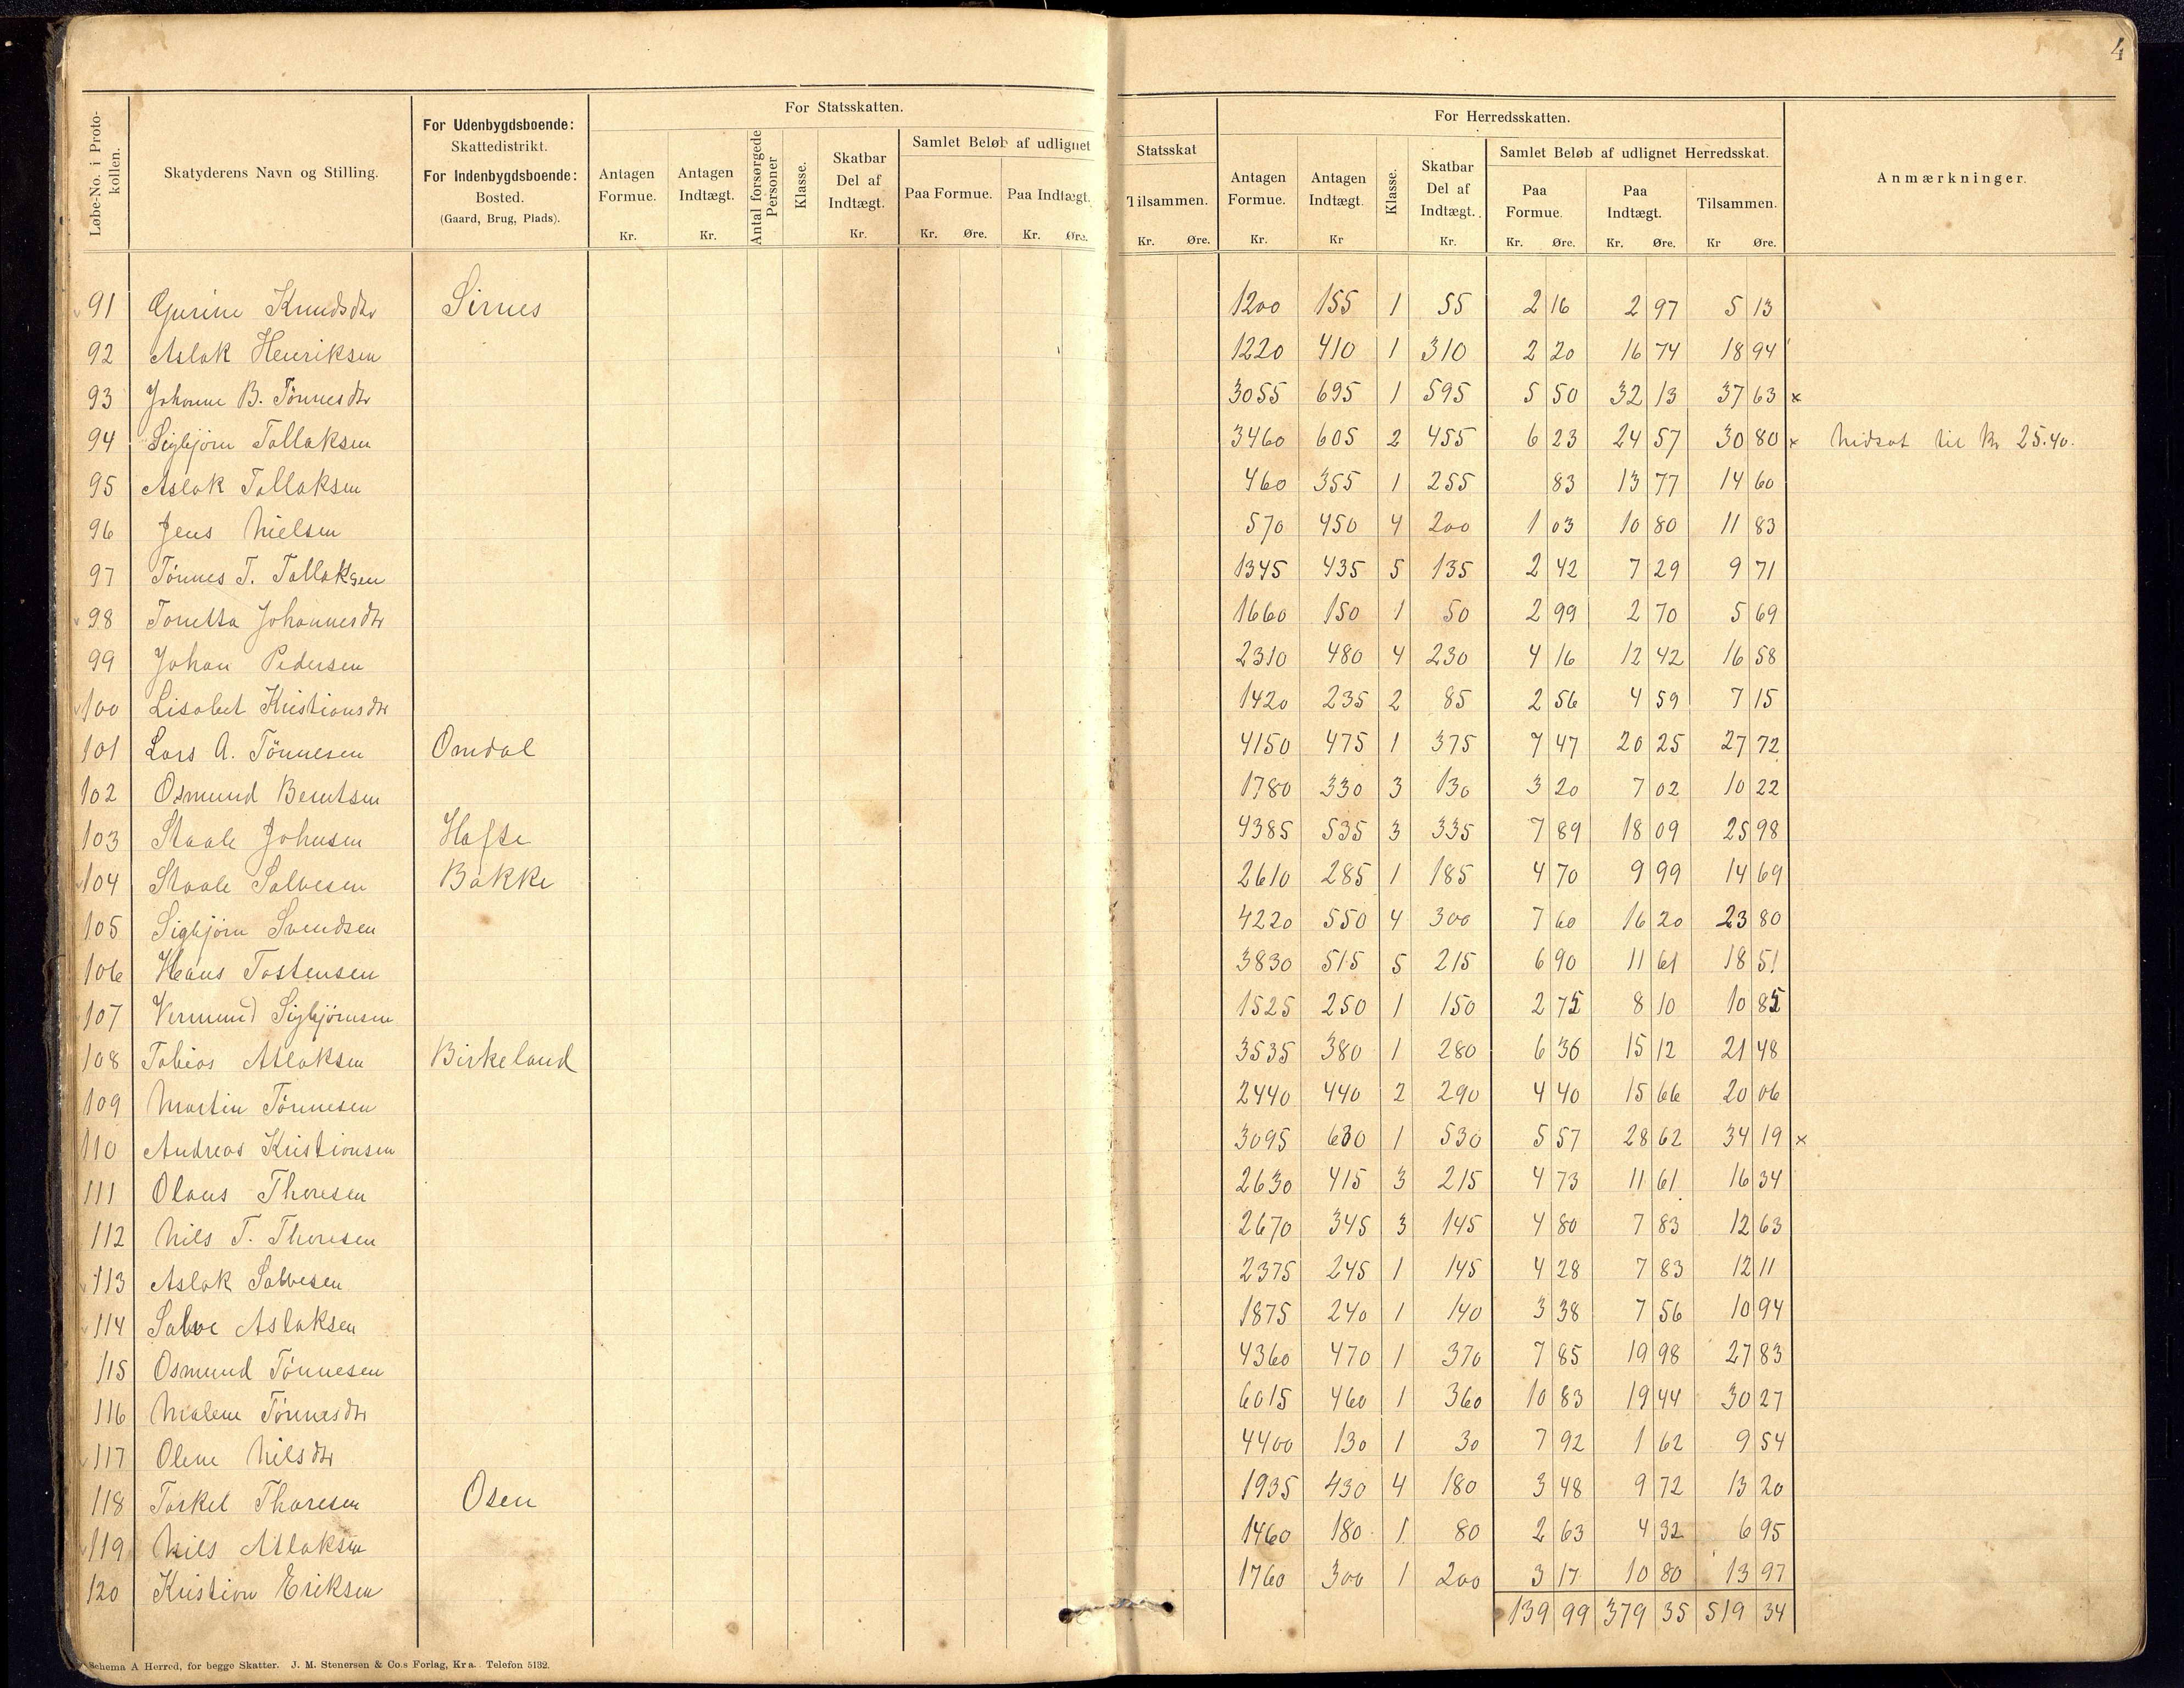 4
Løbe-No. i Proto-kollen.
Skatyderens Navn og Stilling.
For Udenbygdsboende: Skattedistrikt. For Indenbygdsboende: Bosted. (Gaard, Brug, Plads).
For Statsskatten.
Antagen Formue. Kr.
Antagen Indtægt. Kr.
Antal forsørgede Personer
Klasse.
Skatbar Del af Indtægt. Kr.
Samlet Beløb af udlignet Statsskat
Paa Formue. Kr. Øre.
Paa Indtægt. Kr. Øre.
Tilsammen. Kr. Øre.
For Herredsskatten.
Antagen Formue. Kr.
Antagen Indtægt. Kr
Klasse.
Skatbar Del af Indtægt. Kr.
Samlet Beløb af udlignet Herredsskat.
Paa Formue. Kr. Øre.
Paa Indtægt. Kr. Øre.
Tilsammen. Kr Øre.
Anmærkninger.
91 Gurine Knudsdtr Sirnes 1200 155 1 55 2 16 2 97 5 13
92 Aslak Henriksen 1220 410 1 310 2 20 16 74 18 94
93 Johanne B. Tønnesdtr 3055 695 1 595 5 50 32 13 37 63 x
94 Sigbjørn Tallaksen 3460 605 2 455 6 23 24 57 30 80 x nedsat til kr 25.40.
95 Aslak Tallaksen 460 355 1 255 83 13 77 14 60
96 Jens Nielsen 570 450 4 200 1 03 10 80 11 83
97 Tønnes T. Tallaksen 1345 435 5 135 2 42 7 29 9 71
98 Tonetta Johannesdtr 1660 150 1 50 2 99 2 70 5 69
99 Johan Pedersen 2310 480 4 230 4 16 12 42 16 58
100 Lisabet Kristiansdtr 1420 235 2 85 2 56 4 59 7 15
101 Lars A. Tønnesen Omdal 4150 475 1 375 7 47 20 25 27 72
102 Osmund Berntsen 1780 330 3 130 3 20 7 02 10 22
103 Staale Johnsen Hafte 4385 535 3 335 7 89 18 09 25 98
104 Staale Salvesen Bakke 2610 285 1 185 4 70 9 99 14 69
105 Sigbjørn Svendsen 4220 550 4 300 7 60 16 20 23 80
106 Hans Tostensen 3830 515 5 215 6 90 11 61 18 51
107 Vermund Sigbjørnsen 1525 250 1 150 2 75 8 10 10 85
108 Tobias Atlaksen Birkeland 3535 380 1 280 6 36 15 12 21 48
109 Martin Tønnesen 2440 440 2 290 4 40 15 66 20 06
110 Andreas Kristiansen 3095 630 1 530 5 57 28 62 34 19 x
111 Olaus Thoresen 2630 415 3 215 4 73 11 61 16 34
112 Nils T. Thoresen 2670 345 3 145 4 80 7 83 12 63
113 Aslak Salvesen 2375 245 1 145 4 28 7 83 12 11
114 Salve Aslaksen 1875 240 1 140 3 38 7 56 10 94
115 Osmund Tønnesen 4360 470 1 370 7 85 19 98 27 83
116 Malene Tønnesdtr 6015 460 1 360 10 83 19 44 30 27
117 Olene Nilsdtr 4400 130 1 30 7 92 1 62 9 54
118 Torkel Thoresen Osen 1935 430 4 180 3 48 9 72 13 20
119 Nils Atlaksen 1460 180 1 80 2 63 4 32 6 95
120 Kristian Eriksen 1760 300 1 200 3 17 10 80 13 97
139 99 379 35 519 34
Schema A Herred, for begge Skatter. J. M. Stenersen & Co.s Forlag, Kra. Telefon 5132.